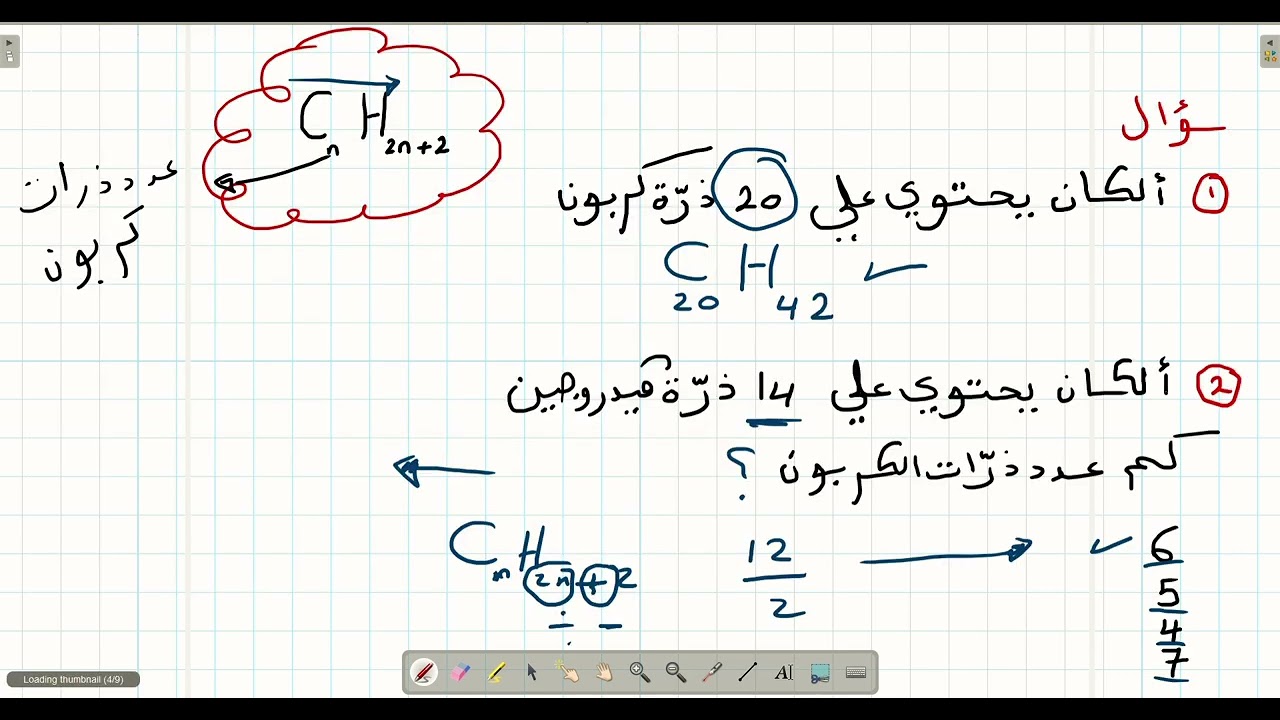 سؤال
C n H 2n+2
عدد ذرات
كربون
① ألكان يحتوي على 20 ذرّة كربون
C 20 H 42 ✓
② ألكان يحتوي على 14 ذرّة هيدروجين
كم عدد ذرّات الكربون ؟
C n H 2n + 2
12
2
✓ 6
5
4
7
Loading thumbnail (4/9)
AI